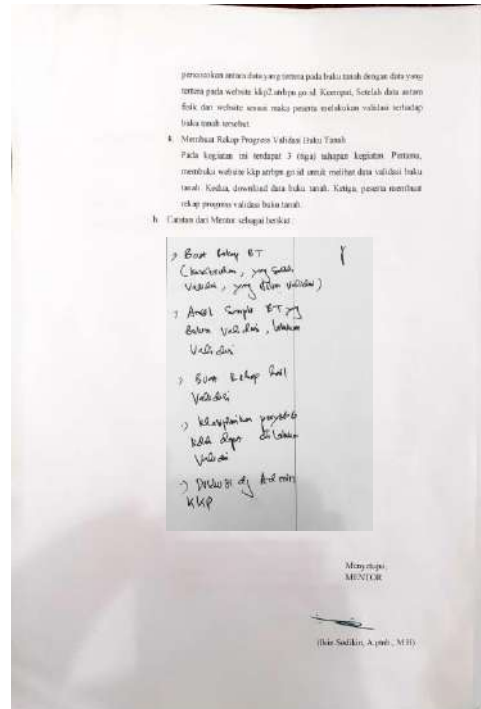 pencocokan antara data yang tertera pada buku tanah dengan data yang
tertera pada website kkp2.atrbpn.go.id. Keempat, Setelah data antara
fisik dan website sesuai maka peserta melakukan validasi terhadap
buku tanah tersebut.
Membuat Rekap Progress Validasi Buku Tanah
Pada kegiatan ini terdapat 3 (tiga) tahapan kegiatan. Pertama,
membuka website kkp.atrbpn.go.id untuk melihat data validasi buku
tanah. Kedua, download data buku tanah. Ketiga, peserta membuat
rekap progress validasi buku tanah.
b. Catatan dari Mentor sebagai berikut :
Buat Rekap BT
(keseluruhan, yang sudah
Validasi, yang belum validasi)
Ambil Sample BT yg
Belum Validasi, lakukan
Validasi
Buat Rekap hasil
Validasi
penyebab
tidak dapat dilakukan
Validasi
Diskusi dg Admin
KKP
Menyetujui,
MENTOR
Sodikin, A.ptnh., M.H)